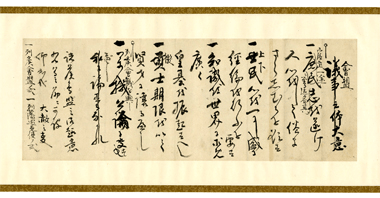 會盟
議事之体大意
一庶民志を遂け
人心をして倦まさらしむるを欲す
一士民心を一ニし盛ニ
経綸を行ふを要す
一知識を世界ニ求め
廣く
皇基を振起すへし
一貢士期限を以て
賢才に譲るへし
一万機公論に決し
私に論するなかれ
諸侯会盟之御趣意
右等之筋ニ可被
仰出哉 大赦之事
一列侯会盟之式 一列藩巡見使之式